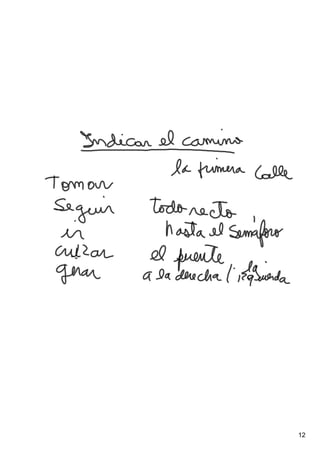 Indicar el camino
la primera calle
Tomar
Seguir todo recto
ir hasta el semáforo
cruzar el puente
girar a la derecha / la izquierda
12